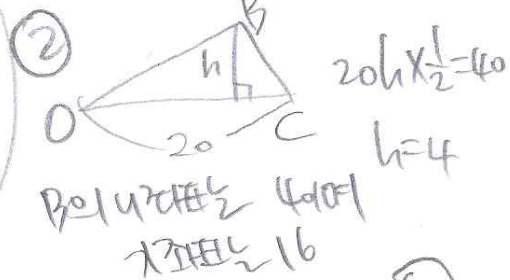 ②
B
h
O
20
C
20h×1/2=40
h=4
B의 y좌표는 4이며
x좌표는 16